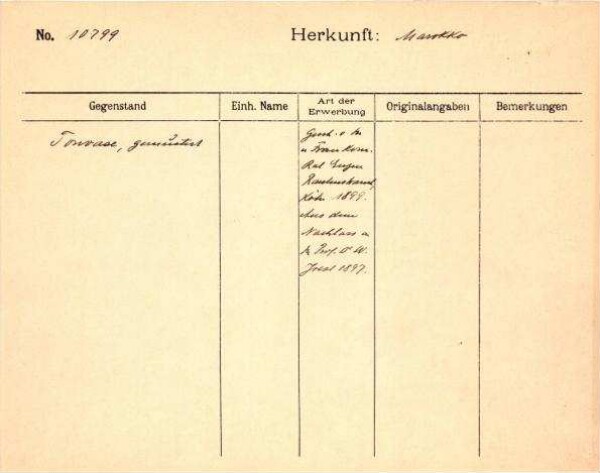 No. 10799
Herkunft: Marokko
Gegenstand
Einh. Name
Art der
Erwerbung
Originalangaben
Bemerkungen
Tonvase, gemustert
Gesch. v. H
u Frau Kom.
Rat Eugen
Rautenstrauch,
Köln 1899.
Aus dem
Nachlass
Prof. Dr W.
Joest 1897.